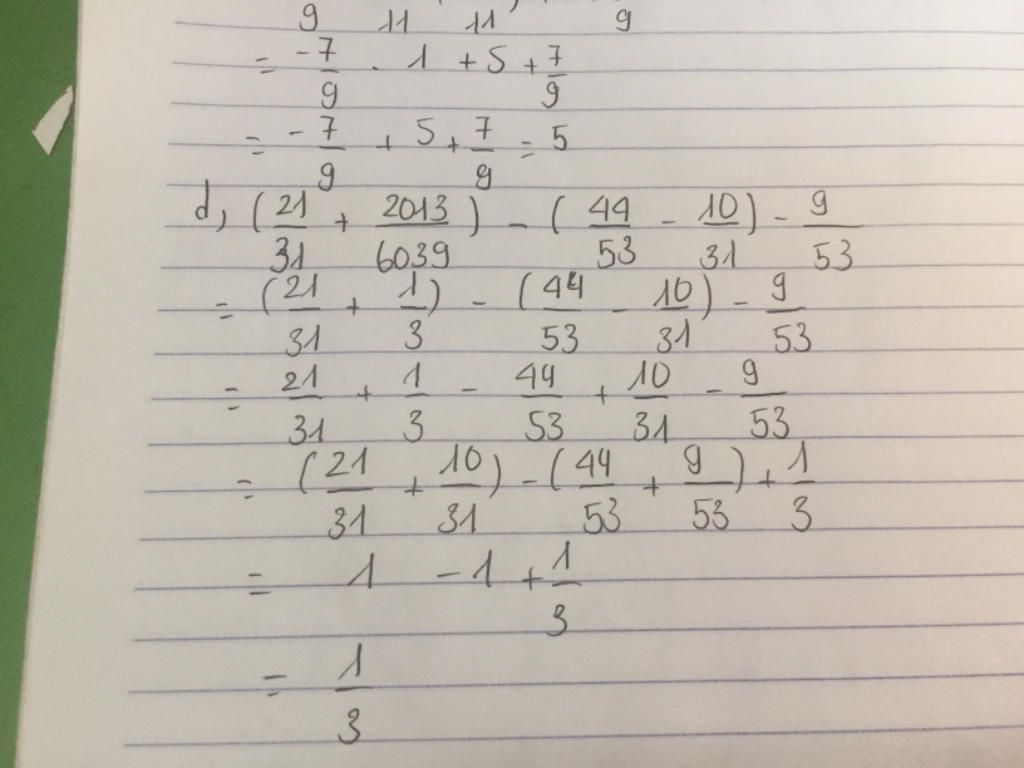 9 11 11 9
= -7/9 . 1 + 5 + 7/9
= -7/9 + 5 + 7/9 = 5
d, (21/31 + 2013/6039) - (44/53 - 10/31) - 9/53
= (21/31 + 1/3) - (44/53 - 10/31) - 9/53
= 21/31 + 1/3 - 44/53 + 10/31 - 9/53
= (21/31 + 10/31) - (44/53 + 9/53) + 1/3
= 1 - 1 + 1/3
= 1/3